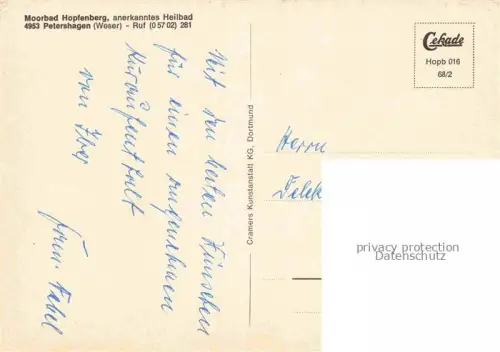 Moorbad Hopfenberg, anerkanntes Heilbad
4953 Petershagen (Weser) - Ruf (0 57 02) 281
Mit den besten Wünschen
für einen angenehmen
Kuraufenthalt
von Ihrer
Fam.
Cramers Kunstanstalt KG, Dortmund
Cekade
Hopb 016
68/2
Herrn
privacy protection
(watermark)